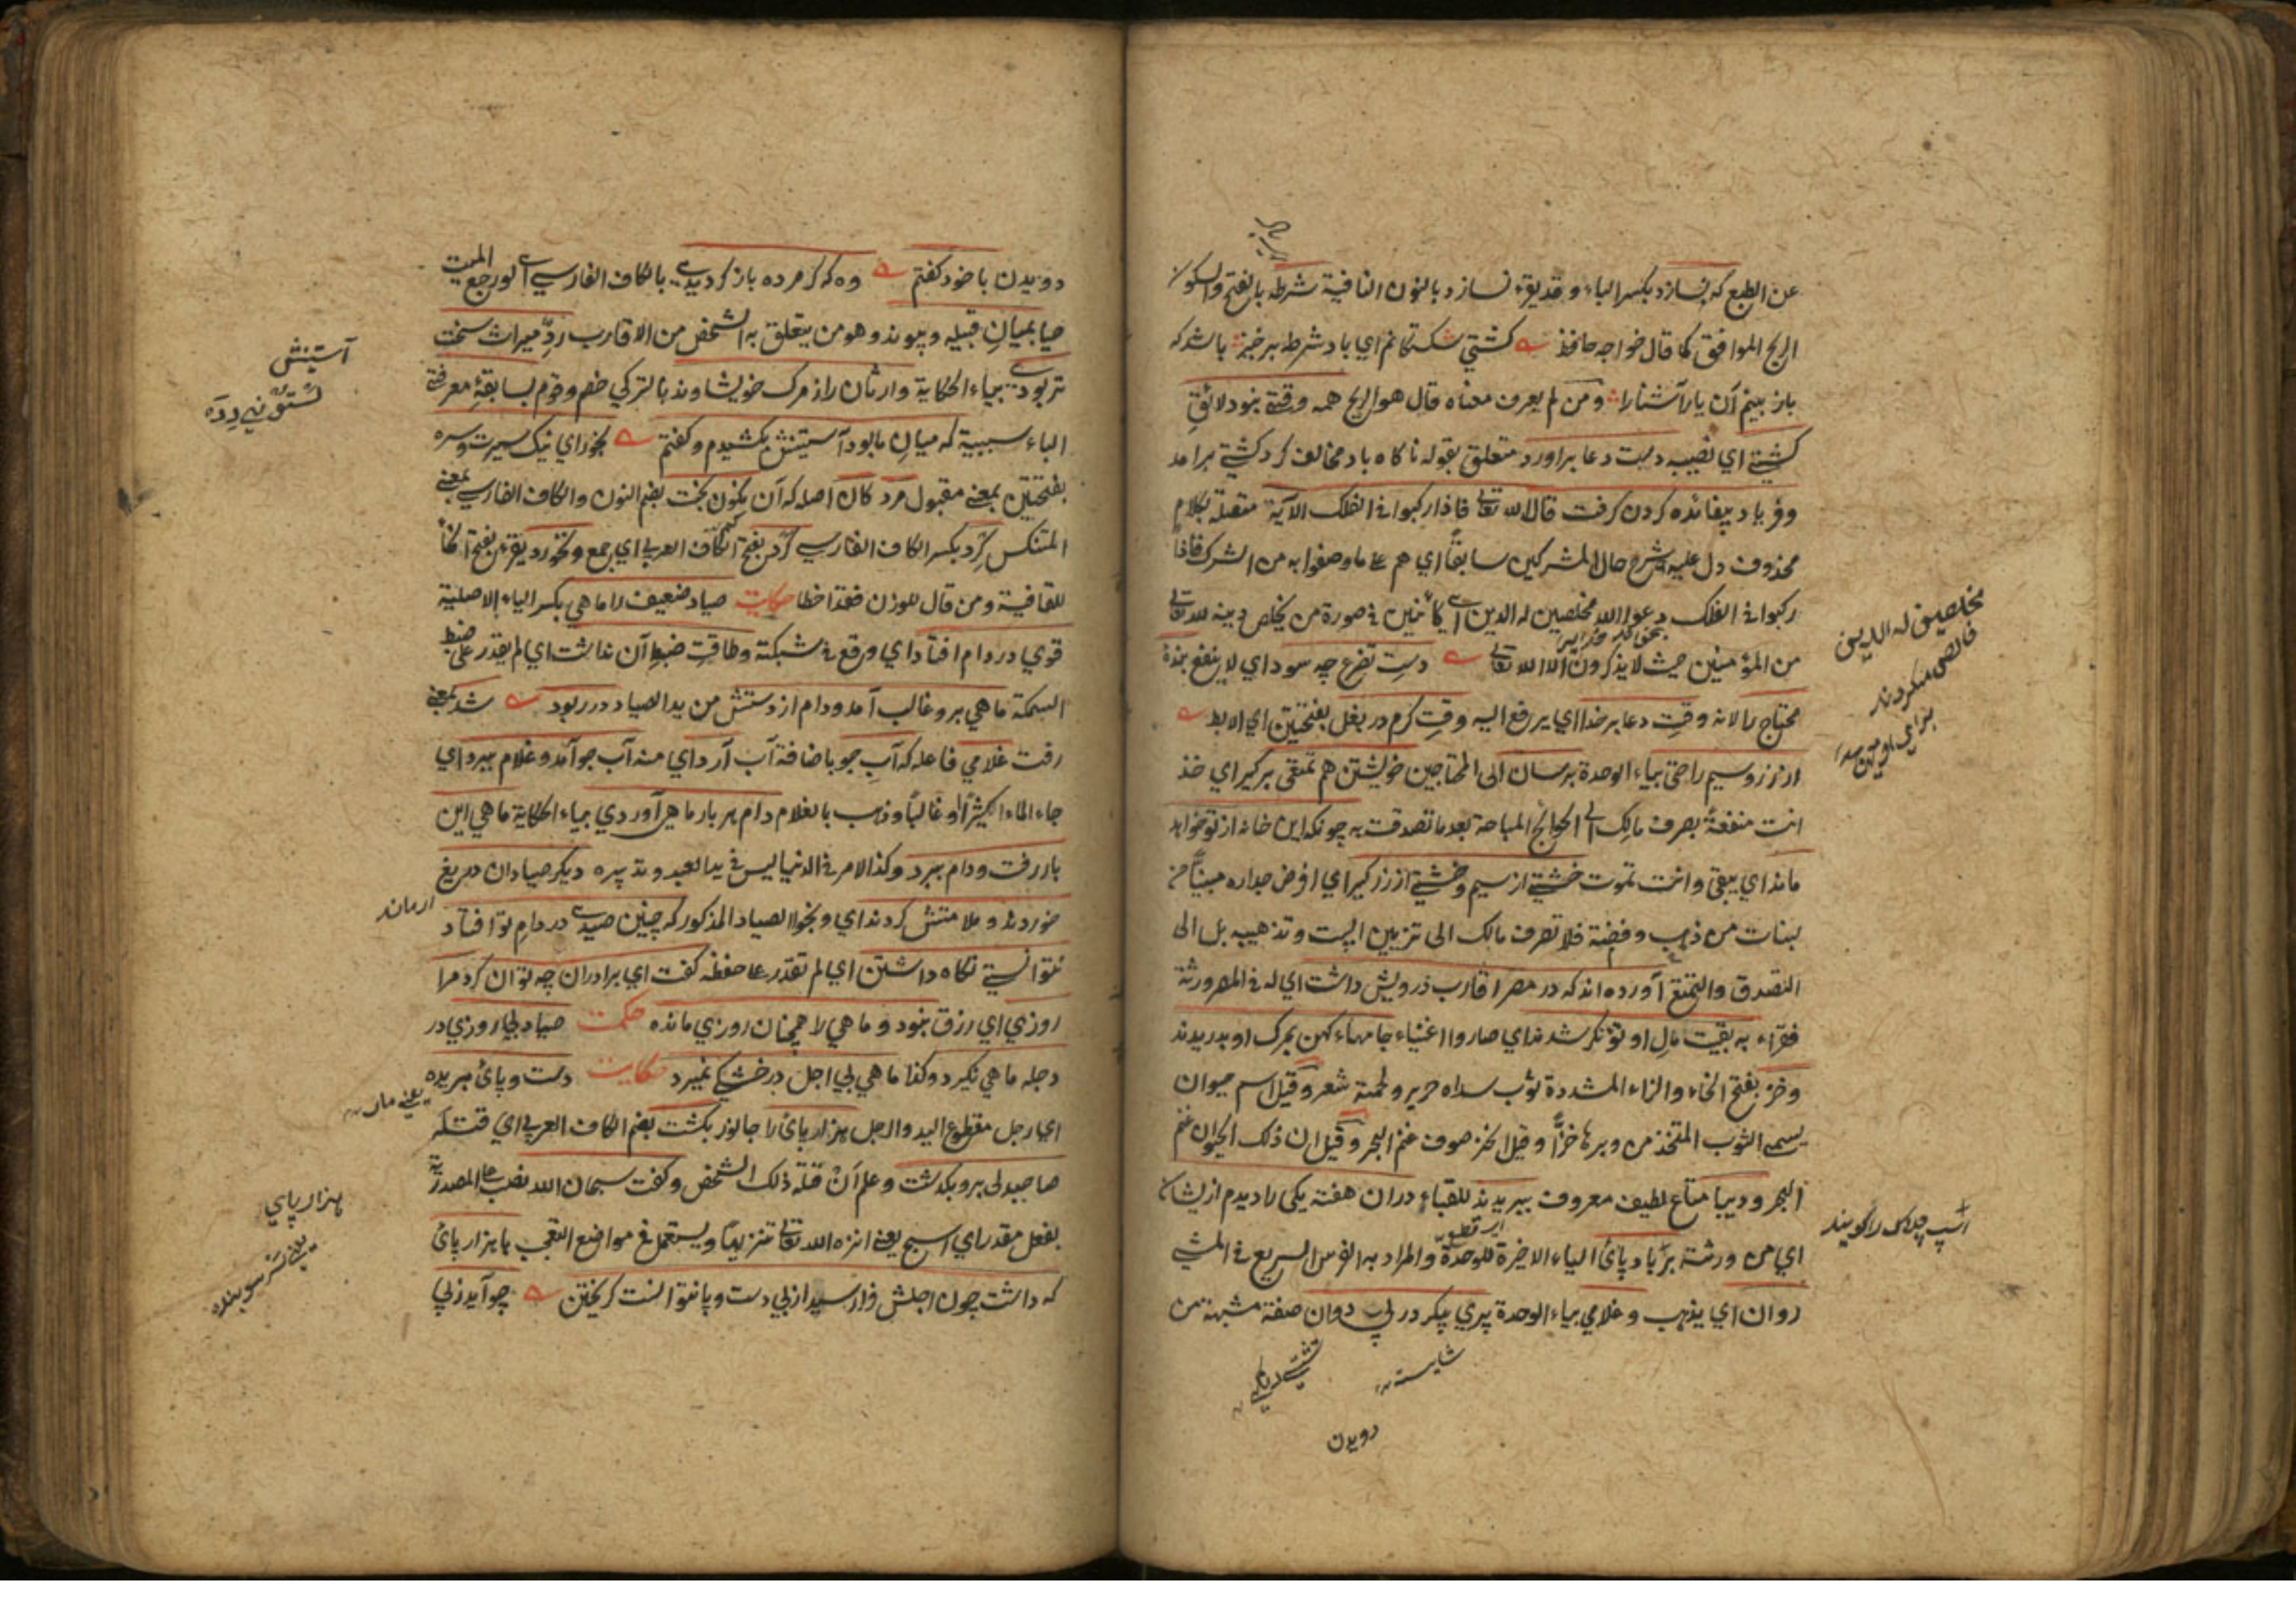 عن الطبع كه نسازد بكسر الباء وقد يقرء نسازد بالنون النافية شرطه بالفتح والسكون
الريح الموافق كما قال خواجه حافظ كشتي شكستكانم اي باد شرطه برخيز باشد كه
باز بينم آن يار آشنا را ومن لم يعرف معناه قال هو الريح همه وقتي نبود لائق
كشتي اي نصيبه دست دعا براورد متعلق بقوله ناكاه باد مخالف كرد كشتي برامد
وفرياد بيفائده كردن كرفت قال الله تعالى فاذا ركبوا في الفلك الآية متصلة بكلام
محذوف دل عليه شرح حال المشركين سابقا اي هم على ما وصفوا به من الشرك فاذا
ركبوا في الفلك دعوا الله مخلصين له الدين اي كائنين في صورة من يخلص دينه لله تعالى
من المؤمنين حيث لا يذكرون الا الله تعالى دست تضرع چه سود اي لا ينفع بنده
محتاج را لانه وقت دعا بر خدا اي يرفع اليه وقت كرم در بغل بفتحتين اي الابط
از زر وسيم راحتي بياء الوحدة برسان الى المحتاجين خويشتن هم تمتعي بركير اي خذ
انت منفعة بصرف مالك الى الحوائج المباحة بعد ما تصدقت به چونكه اين خانه از تو خواهد
ماند اي يبقى وانت تموت خشتي از سيم وخشتي از زر كير اي افرض جداره مبنيا من
لبنات من ذهب وفضة فلا تصرف مالك الى تزيين البيت وتذهيبه بل الى
التصدق والتمتع آورده اند كه در مصر اقارب درويش داشت اي له في المصر ورثة
فقراء به بقيت مال او توانكر شدند اي صاروا اغنياء جامهاء كهن بمرك او بدريدند
وخز بفتح الخاء والزاء المشددة ثوب سداه حرير ولحمته شعر وقيل اسم حيوان
يسمى الثوب المتخذ من وبرها خزا وقيل الخز صوف غنم البحر وقيل ان ذلك الحيوان غنم
البحر وديبا متاع لطيف معروف ببريدند للقباء دران هفته يكي را ديدم از يشان
اي من ورثة بر باد پائ الياء الاخيرة للوحدة والمراد به الفرس السريع في المشي
روان اي يذهب وغلامي بياء الوحدة پري پيكر در پي دوان صفة مشبهة من
مخلصين له الدين
اسب چلاك را كويند
شايسته
دويدن
دويدن با خود كفتم وه كه كر مرده باز كرديدي بالكاف الفارسي اي لو رجع الميت
حيا بميان قبيله وپيوند وهو من يتعلق به الشخص من الاقارب رد ميراث سخت
تر بودي بياء الحكاية وارثان را ز مرك خويشاوند بالتركي خصم وقوم بسابقه معرفتي
الباء سببية كه ميان ما بود آستينش بكشيدم وكفتم بخور اي نيك سيرت وسره
بفتحتين بمعنى مقبول مرد كان اصله كه آن نكون بخت بضم النون والكاف الفارسي بمعنى
المتنكس كرد بكسر الكاف الفارسي كرد بفتح الكاف العربي اي جمع ونخورد يقرء بفتح الخاء
للقافية ومن قال للوزن فقد اخطا حكايت صياد ضعيف را ماهي بكسر الياء الاصلية
قوي در دام افتاد اي وقع في شبكته وطاقت ضبط آن نداشت اي لم يقدر على ضبط
السمكة ماهي برو غالب آمد ودام از دستش من يد الصياد در ربود شد بمعنى
رفت غلامي فاعله كه آب جو باضافة آب آرد اي منه آب جو آمد وغلام ببرد اي
جاء الماء كثيرا او غالبا وذهب بالغلام دام هر بار ماهي آوردي بياء الحكاية ماهي اين
بار رفت ودام ببرد وكذا الامر في الدنيا ليس في يد العبد وتدبيره ديكر صيادان دريغ
خوردند وملامتش كردند اي وبخوا الصياد المذكور كه چنين صيدي در دام تو افتاد
نتوانستي نكاه داشتن اي لم تقدر على حفظه كفت اي برادران چه توان كرد مرا
روزي اي رزق نبود وماهي را همچنان روزي مانده حكمت صياد بي روزي در
دجله ماهي نكيرد وكذا ماهي بي اجل در خشكي نميرد حكايت دست وپائ بريده
اي رجل مقطوع اليد والرجل هزار پائ را جالوز بكشت بضم الكاف العربي اي قتله
صاحبدلي برو بكذشت وعلم ان قتله ذلك الشخص وكفت سبحان الله نصب على المصدرية
بفعل مقدر اي اسبح يعني انزه الله تعالى تنزيها ويستعمل في مواضع التعجب با هزار پائ
كه داشت چون اجلش فراز رسيد از بي دست وپا نتوانست كريختن چو آيد ز پي
آستينش
ارمان
هزار پاي